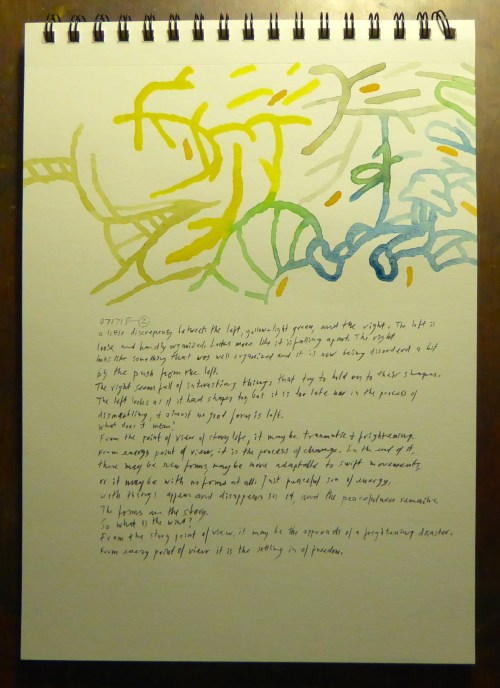 a little discrepancy between the left, yellow-light green, and the right. The left is
loose and hardly organized. Looks more like it is falling apart. The right
looks like something that was well organized and it is now being disordered a bit
by the push from the left.
The right seems full of interesting things that try to hold on to their shapes.
The left looks as if it had shapes too, but it is too late now in the process of
dismantling, + almost no good form is left.
What does it mean?
From the point of view of story life, it may be traumatic + frightening.
From energy point of view, it is the process of change. In the end of it,
there may be new forms, maybe more adaptable to swift movements
or it may be with no forms at all. Just peaceful sea of energy,
with things appear and disappear in it, and the peacefulness remains.
The forms are the story.
So what is the wind?
From the story point of view, it may be the approach of a frightening disaster.
From energy point of view it is the setting in of freedom.